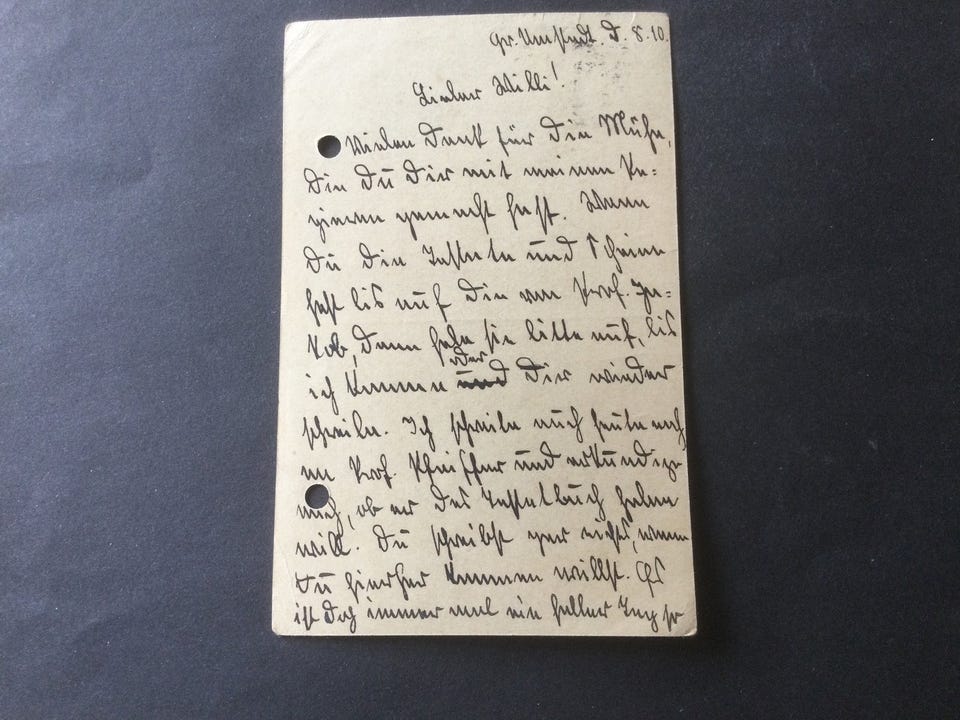 Gr. Umstadt. D. 8.10.
Lieber Willi!
Vielen Dank für Die Mühe,
Die Du Dir mit meinen Pa-
pieren gemacht hast. Wenn
Du Die Testate und Scheine
hast bis auf Die von Prof. Ja-
kob, Dann hebe sie bitte auf, bis
ich komme oder Dir wieder
schreibe. Ich schreibe auch heute noch
an Prof. Pfeiffer und erkundige
mich, ob er Das Testatbuch haben
will. Du schreibst gar nichts, wann
Du hierher kommen willst. Es
ist Doch immer mal ein heller Tag so